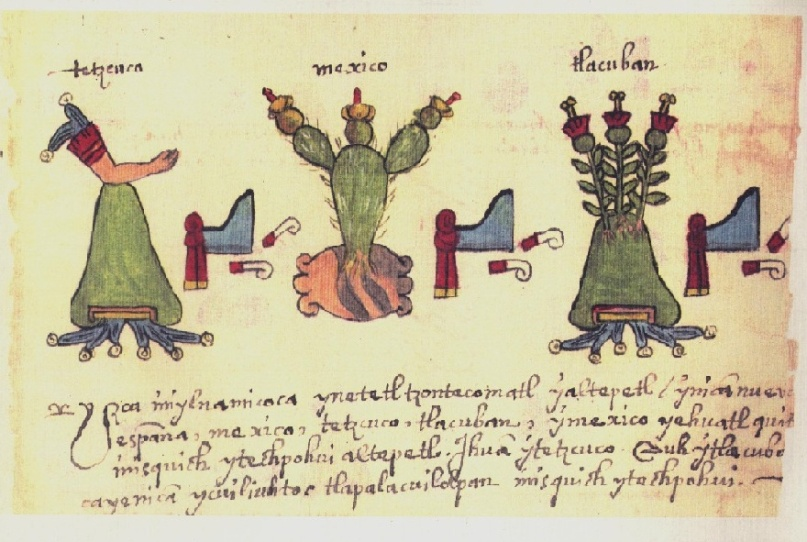 tetzcuco mexico tlacuban
Yzca inilnamicoca ynetetl tzontecomatl yaltepetl / ynicã nuev
españa, mexico, tetzcuco, tlacuban, ymexico yehuatl
inisquich ytechpohui altepetl. Ihuã ytetzcuco. Auh ytlacuba
cayenicã ycuiliuhtoc tlapalacuilolpan inisquich ytechpohui.